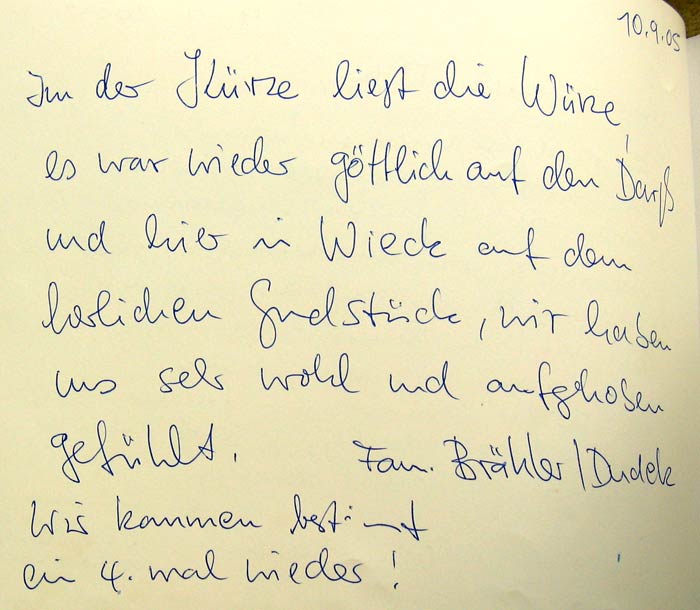 10.9.05
In der Kürze liegt die Würze,
es war wieder göttlich auf den Darß
und hier in Wieck auf dem
Grudstück, wir haben
uns sehr wohl und aufgehoben
gefühlt. Fam. Brähler/Dudek
Wir kommen bestimmt
ein 4. mal wieder!